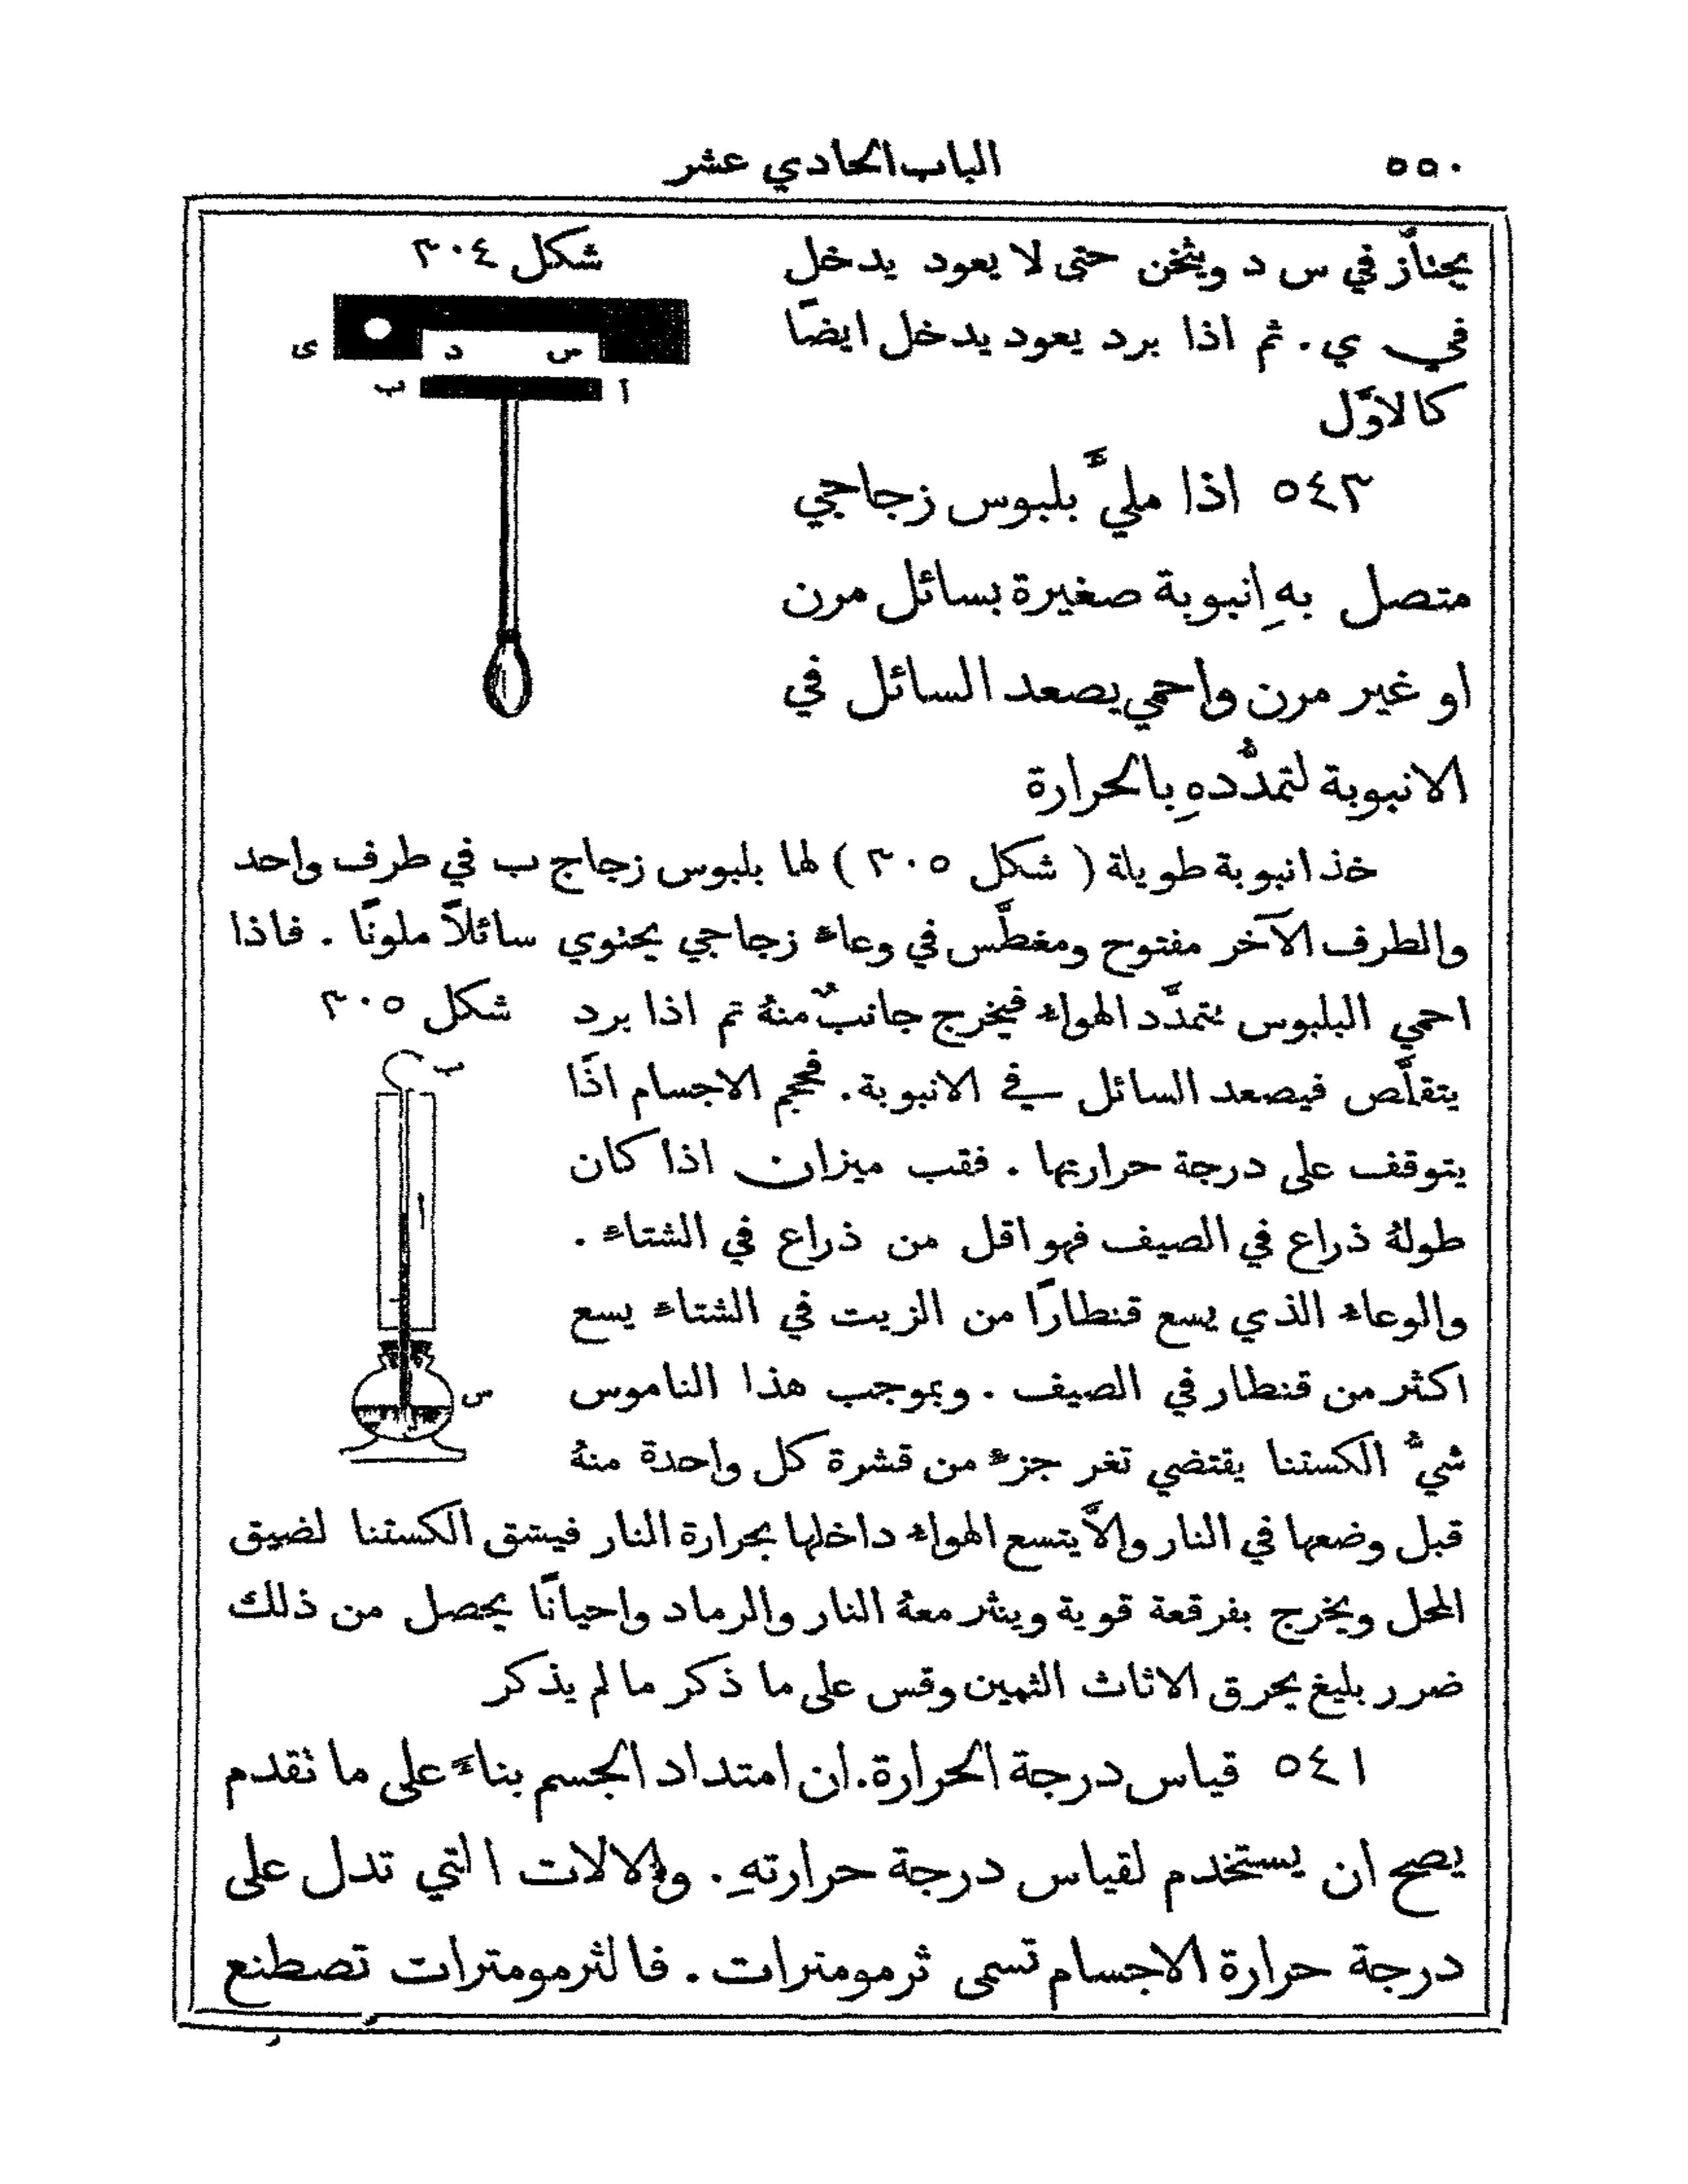 ٥٥٠
الباب الحادي عشر
يجنازُ في س د ويثخن حتى لا يعود يدخل
في ي . ثم اذا برد يعود يدخل ايضًا
كالاوَّل
شكل ٣٠٤
ى
د
س
ب
آ
٥٤٣ اذا مليَّ بلبوس زجاجي
متصل بهِ انبوبة صغيرة بسائل مرن
او غير مرن واحمي يصعد السائل في
الانبوبة لتمدُّدهِ بالحرارة
خذ انبوبة طويلة ( شكل ٣٠٥ ) لها بلبوس زجاج ب في طرف واحد
والطرف الآخر مفتوح ومغطَّس في وعاء زجاجي يحنوي سائلاً ملونًا . فاذا
احمي البلبوس يتمدَّد الهواء فيخرج جانبٌ منهُ ثم اذا برد
شكل ٣٠٥
يتقلَّص فيصعد السائل في الانبوبة . فحجم الاجسام اذًا
يتوقف على درجة حرارتها . فقب ميزان اذا كان
طولهُ ذراع في الصيف فهو اقل من ذراع في الشتاء .
والوعاء الذي يسع قنطارًا من الزيت في الشتاء يسع
اكثر من قنطار في الصيف . وبموجب هذا الناموس
شيُّ الكستنا يقتضي ثغر جزء من قشرة كل واحدة منهُ
ب
س
قبل وضعها في النار والاَّ يتسع الهواء داخلها بحرارة النار فيشق الكستنا لضيق
المحل ويخرج بفرقعة قوية وينثر معهُ النار والرماد واحيانًا يحصل من ذلك
ضرر بليغ يحرق الاثاث الثمين وقس على ما ذكر ما لم يذكر
٥٤١ قياس درجة الحرارة . ان امتداد الجسم بناءً على ما نقدم
يصح ان يستخدم لقياس درجة حرارتهِ . والالات التي تدل على
درجة حرارة الاجسام تسمى ثرمومنرات . فالثرمومترات تصطنع